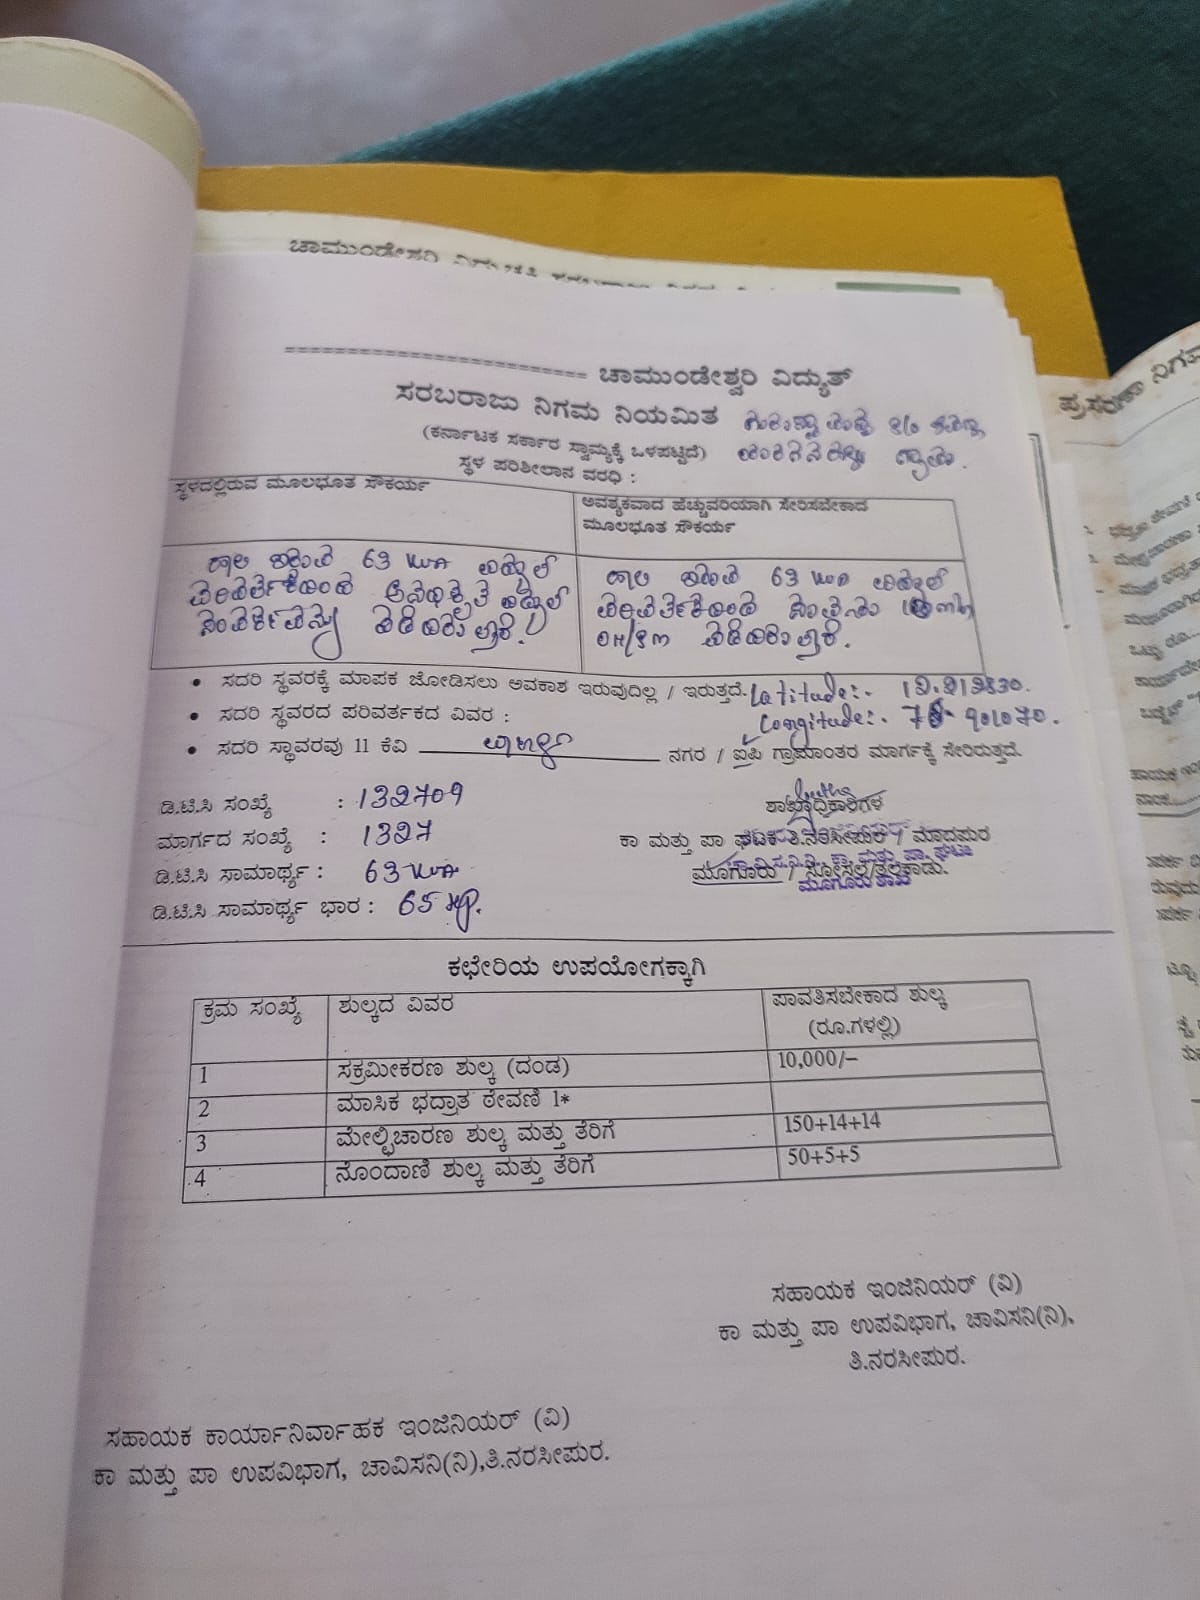 ಚಾಮುಂಡೇಶ್ವರಿ
======================== ಚಾಮುಂಡೇಶ್ವರಿ ವಿದ್ಯುತ್
ಸರಬರಾಜು ನಿಗಮ ನಿಯಮಿತ
(ಕರ್ನಾಟಕ ಸರ್ಕಾರ ಸ್ವಾಮ್ಯಕ್ಕೆ ಒಳಪಟ್ಟಿದೆ)
ಸ್ಥಳ ಪರಿಶೀಲಾನ ವರಧಿ :
ಸ್ಥಳದಲ್ಲಿರುವ ಮೂಲಭೂತ ಸೌಕರ್ಯ
ಅವಶ್ಯಕವಾದ ಹೆಚ್ಚುವರಿಯಾಗಿ ಸೇರಿಸಬೇಕಾದ
ಮೂಲಭೂತ ಸೌಕರ್ಯ
ಹಾಲಿ ಇರುವ 63 KVA ವಿದ್ಯುತ್
ಪರಿವರ್ತಕದಿಂದ ಅನಧಿಕೃತ ವಿದ್ಯುತ್
ಸಂಪರ್ಕವನ್ನು ಪಡೆದಿರುತ್ತಾರೆ.
ಹಾಲಿ ಇರುವ 63 KVA ವಿದ್ಯುತ್
ಪರಿವರ್ತಕದಿಂದ
OH/ ಪಡೆದಿರುತ್ತಾರೆ.
• ಸದರಿ ಸ್ಥವರಕ್ಕೆ ಮಾಪಕ ಜೋಡಿಸಲು ಅವಕಾಶ ಇರುವುದಿಲ್ಲ / ಇರುತ್ತದೆ. Latitude:- 12.212830.
• ಸದರಿ ಸ್ಥವರದ ಪರಿವರ್ತಕದ ವಿವರ : Longitude:- 76.901070.
• ಸದರಿ ಸ್ಥಾವರವು 11 ಕೆವಿ ನಗರ / ಐಪಿ ಗ್ರಾಮಾಂತರ ಮಾರ್ಗಕ್ಕೆ ಸೇರಿರುತ್ತದೆ.
ಡಿ.ಟಿ.ಸಿ ಸಂಖ್ಯೆ : 132709
ಮಾರ್ಗದ ಸಂಖ್ಯೆ : 1327
ಡಿ.ಟಿ.ಸಿ ಸಾಮಾರ್ಥ್ಯ : 63 KVA
ಡಿ.ಟಿ.ಸಿ ಸಾಮಾರ್ಥ್ಯ ಭಾರ : 65 HP.
ಶಾಖಾಧಿಕಾರಿಗಳ
ಕಾ ಮತ್ತು ಪಾ ಘಟಕ ತಿ.ನರಸೀಪುರ / ಮಾದಪುರ
ಮೂಗೂರು / ಸೋಸಲೆ/ತಲಕಾಡು.
ಕಛೇರಿಯ ಉಪಯೋಗಕ್ಕಾಗಿ
ಕ್ರಮ ಸಂಖ್ಯೆ ಶುಲ್ಕದ ವಿವರ ಪಾವತಿಸಬೇಕಾದ ಶುಲ್ಕ
(ರೂ.ಗಳಲ್ಲಿ)
1 ಸಕ್ರಮೀಕರಣ ಶುಲ್ಕ (ದಂಡ) 10,000/-
2 ಮಾಸಿಕ ಭದ್ರಾತ ಠೇವಣಿ 1*
3 ಮೇಲ್ವಿಚಾರಣ ಶುಲ್ಕ ಮತ್ತು ತೆರಿಗೆ 150+14+14
4 ನೊಂದಾಣಿ ಶುಲ್ಕ ಮತ್ತು ತೆರಿಗೆ 50+5+5
ಸಹಾಯಕ ಇಂಜಿನಿಯರ್ (ವಿ)
ಕಾ ಮತ್ತು ಪಾ ಉಪವಿಭಾಗ, ಚಾವಿಸನಿ(ನಿ),
ತಿ.ನರಸೀಪುರ.
ಸಹಾಯಕ ಕಾರ್ಯಾನಿರ್ವಾಹಕ ಇಂಜಿನಿಯರ್ (ವಿ)
ಕಾ ಮತ್ತು ಪಾ ಉಪವಿಭಾಗ, ಚಾವಿಸನಿ(ನಿ),ತಿ.ನರಸೀಪುರ.